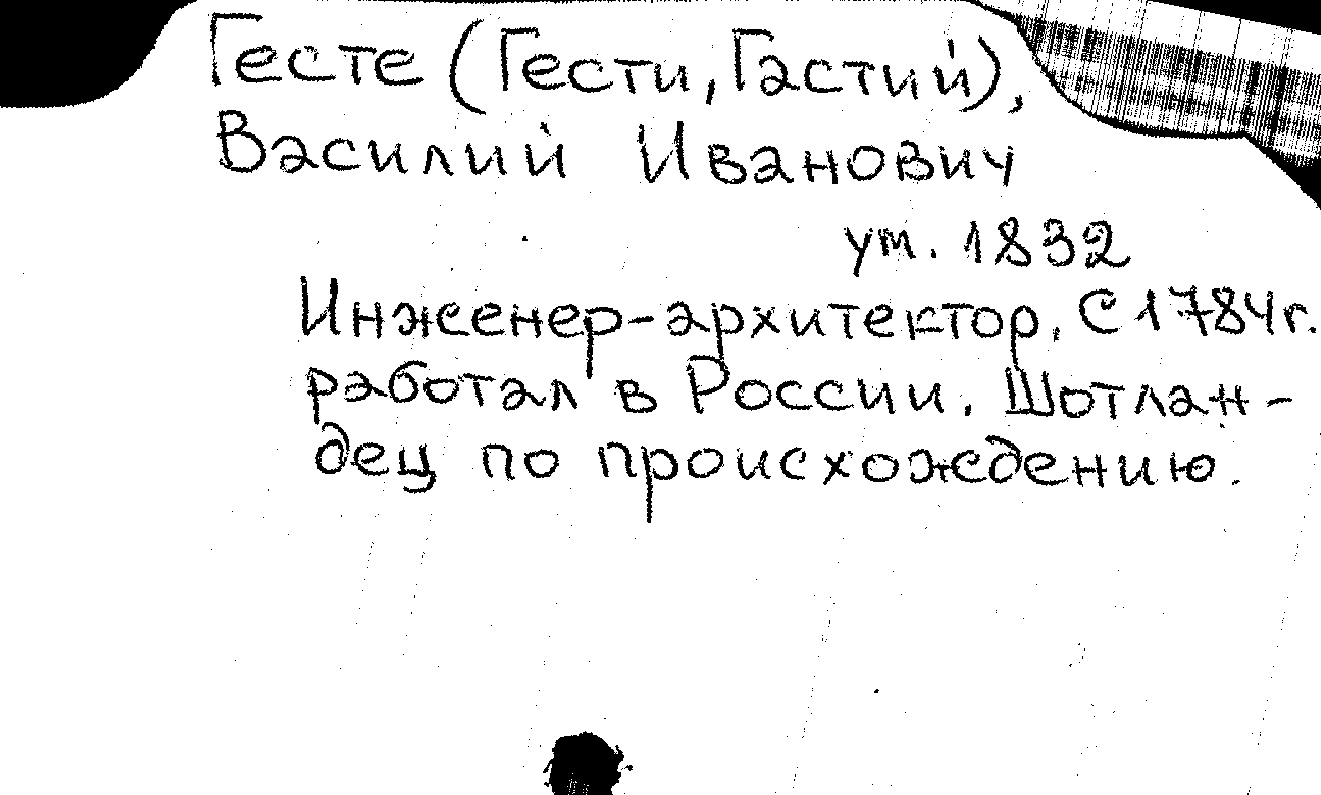 Гесте (Гести, Гастий),
Василий Иванович
ум. 1832
Инженер-архитектор. С 1784г.
работал в России. Шотлан-
дец по происхождению.